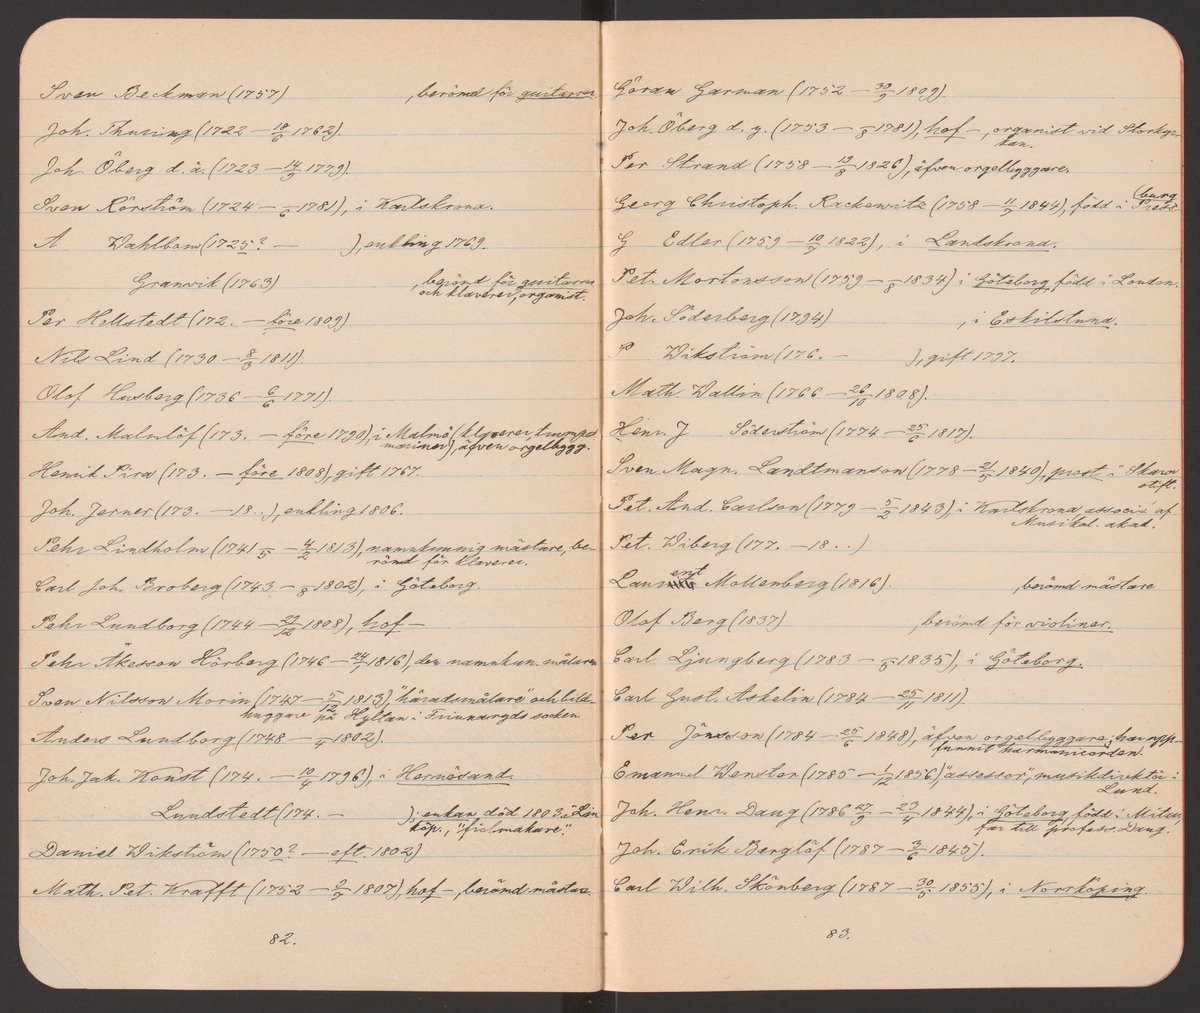 Sven Beckman (1757) , berömd för guitarrer.
Joh. Thuring (1722 — 18/6 1762).
Joh. Öberg d. ä. (1723 — 14/9 1779).
Sven Rörström (1724 — /6 1781), i Karlskrona.
A Wahlbom (1725? — ), enkling 1769.
Granvik (1763) , berömd för guitarrer
och klaverer, organist.
Per Hellstedt (172. — före 1809)
Nils Lind (1730 — 8/3 1811)
Olof Husberg (1736 — 6/6 1771)
And. Malmlöf (173. — före 1790), i Malmö (klaverer, trumpet
mariner), äfven orgelbygg.
Henrik Pira (173. — före 1808), gift 1767.
Joh. Jerner (173. — 18..), enkling 1806.
Pehr Lindholm (1741 /5 — 4/2 1813), namnkunnig mästare, be-
römd för klaverer.
Carl Joh. Broberg (1743 — /8 1802), i Göteborg.
Pehr Lundborg (1744 — 22/12 1808), hof —
Pehr Åkesson Hörberg (1746 — 24/1 1816), den namnkun. målaren
Sven Nilsson Morin (1747 — 5/12 1813), "häradsmålare" och bild-
huggare på Hyltan i Frinnaryds socken
Anders Lundborg (1748 — /4 1802).
Joh. Jak. Konst (174. — 10/4 1796), i Hernösand.
Lundstedt (174. — ); enkan död 1803 i Lin
köp., "fiolmakare".
Daniel Wikström (1750? — eft. 1802)
Math. Pet. Krafft (1752 — 2/7 1807), hof —, berömd mästar.
82.
Göran Garman (1752 — 30/9 1809).
Joh. Öberg d. y. (1753 — /8 1781), hof —, organist vid Storkyr-
kan.
Per Strand (1758 — 19/8 1826), äfven orgelbyggare.
(burg
Georg Christoph. Rackewitz (1758 — 11/9 1844), född i
G Edler (1759 — 10/9 1822), i Landskrona.
Pet. Mortonsson (1759 — /8 1834) i Göteborg, född i London.
Joh. Söderberg (1794) , i Eskilstuna.
P Wikström (176. — ), gift 1797.
Math. Wallin (1766 — 26/10 1808).
Henr. J Söderström (1774 — 25/6 1817).
Sven Magn. Landtmanson (1778 — 21/5 1840), prost i Skara
stift.
Pet. And. Carlson (1779 — 5/2 1843), i Karlskrona associé af
Musikal. akad.
Pet. Wiberg (177. — 18..)
Laurent Mollenberg (1816). , berömd mästare
Olof Berg (1837) , berömd för violiner.
Carl Ljungberg (1783 — /5 1835), i Göteborg.
Carl Gust. Askelin (1784 — 25/11 1811).
Per Jönsson (1784 — 25/6 1848), äfven orgelbyggare; har upp-
funnit harmonicorden.
Emanuel Wenster (1785 — 1/12 1856), "assessor", musikdirektör i
Lund.
Joh. Henr. Daug (1786 27/9 — 23/4 1844), i Göteborg, född i Mitau,
far till profess. Daug.
Joh. Erik Berglöf (1787 — 3/6 1845).
Carl Wilh. Skönberg (1787 — 30/5 1855), i Norrköping.
83.